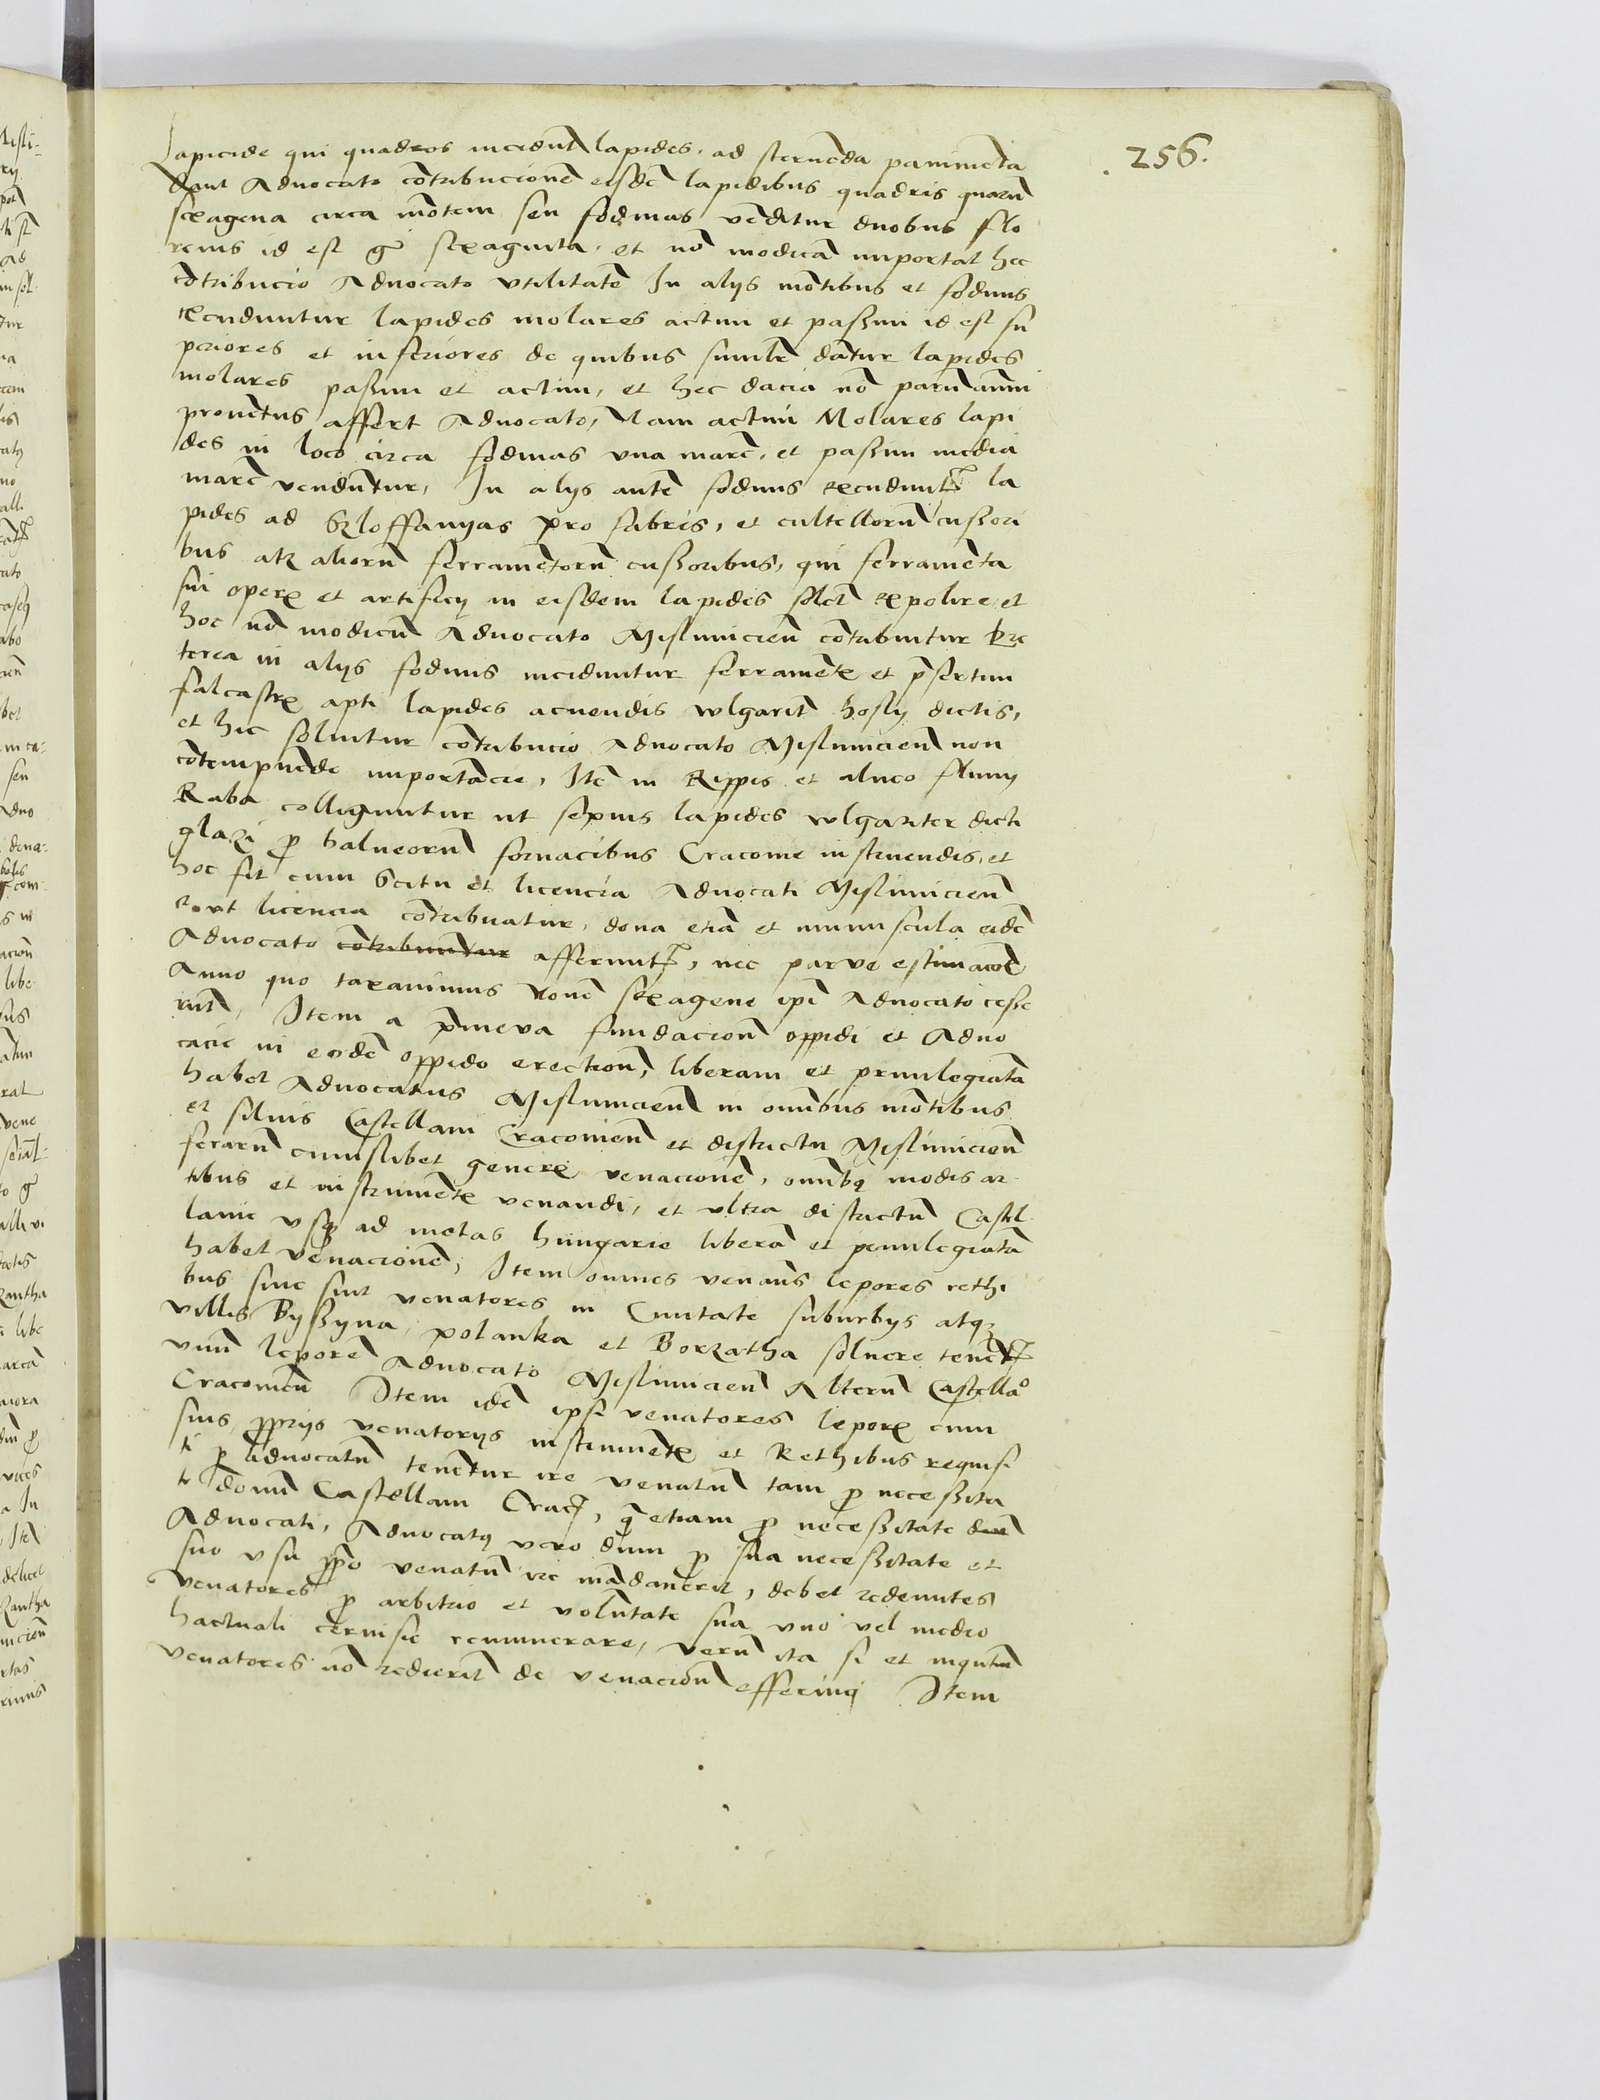 256.
Lapicide qui quadros incidunt lapides, ad sternenda pavimenta
dant Advocato contribucionem eisdem lapidibus quadris quarum
sexagena circa montem seu fodinas venditur duobus flo
renis id est gr sexaginta, et non modicam importat hec
contribucio Advocato vtilitatem In alijs montibus et fodinis
excuduntur lapides molares actini et passini id est su
periores et inferiores de quibus similiter dantur lapides
molares passini et actini, et hec dacia non parum anni
proventus affert Advocato, Nam actini Molares lapi
des in loco circa fodinas vna marc, et passini media
marc venduntur, In alijs autem fodinis excuduntur la
pides ad Szloffanyas pro fabris, et cultellorum cussori
bus atque aliorum ferramentorum cussoribus, qui ferramenta
sui operis et artificij in eisdem lapides solent expolire et
hoc non modicum Advocato Mislimicien contribuitur Pre
terea in alijs fodinis inciduntur ferramentis et presertim
falcastris apti lapides acuendis wlgariter hosly dictis,
et hic soluitur contribucio Advocato Mislimicien non
contempnende importancie, Item in Rippis et alueo fluuij
Raba colliguntur ut sepius lapides wlgariter dicti
glazi pro balneorum fornacibus Cracouie instruendis, et
hoc fit cum Scitu et licencia Advocati Mislimicien
et vt licencia contribuatur, dona etiam et munuscula eidem
Advocato contribuuntur afferuntur, nec parve estimacionis
Anno quo taxauimus Novem sexagene ipsi Advocato cesse
runt, Item a primeva fundacione oppidi et Advo
cacie in eodem oppido erectione, liberam et priuilegiatam
habet Advocatus Mislimicien in omnibus montibus
et siluis Castellani Cracovien et districtu Mislimicien
ferarum cuiuslibet generis venacionem, omnibus modis ar
tibus et instrumentis venandi, et vltra districtum Castel
lanie vsque ad metas hungarie liberam et priuilegiatam
habet venacionem, Item omnes venantes lepores rethi
bus siue sint venatores in Ciuitate suburbijs atque
villis Byssyna, polanka et Borzatha soluere tenentur
vnum leporem Advocato Mislimicien Alterum Castellano
Cracouien Item idem ipsi venatores leporum cum
suis proprijs venatorijs instrumentis et Rethibus requisi
ti per Advocatum tenentur ire venatum tam pro necessita
te domini Castellani Crac, quam etiam pro necessitate domini
Advocati, Advocatus vero dum pro sua necessitate et
suo vsu proprio venatum ire mandauerit, debet redeuntes
venatores pro arbitrio et voluntate sua vno vel medio
hactuali ceruisie remunerare, verum ita si et inquantum
venatores non redierint de venacione Item